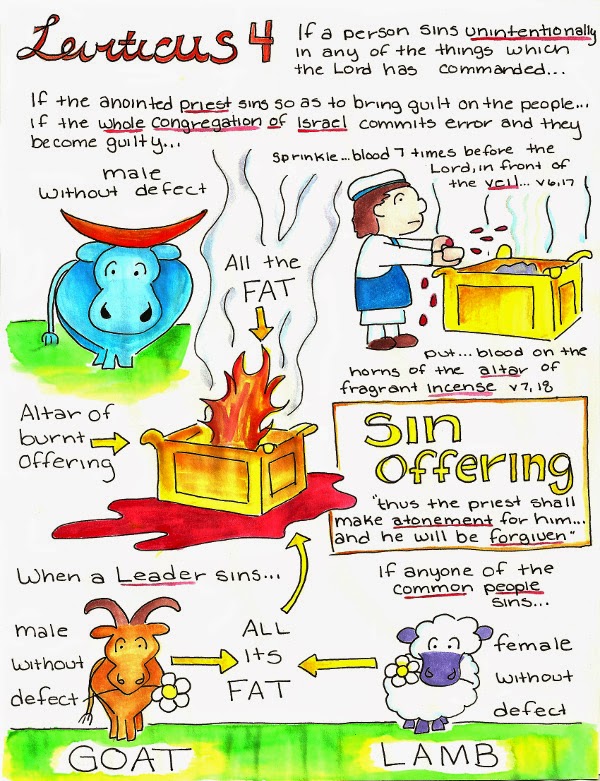 Leviticus 4
If a person sins unintentionally
in any of the things which
the Lord has commanded...
If the anointed priest sins so as to bring guilt on the people...
if the whole congregation of Israel commits error and they
become guilty...
male
without defect
sprinkle...blood 7 times before the
Lord, in front of
the veil... v6,17
All the
FAT
put...blood on the
horns of the altar of
fragrant incense v7,18
Altar of
burnt
offering
Sin
Offering
"thus the priest shall
make atonement for him...
and he will be forgiven"
When a Leader sins...
If anyone of the
common people
sins...
male
without
defect
ALL
its
FAT
female
without
defect
GOAT
LAMB